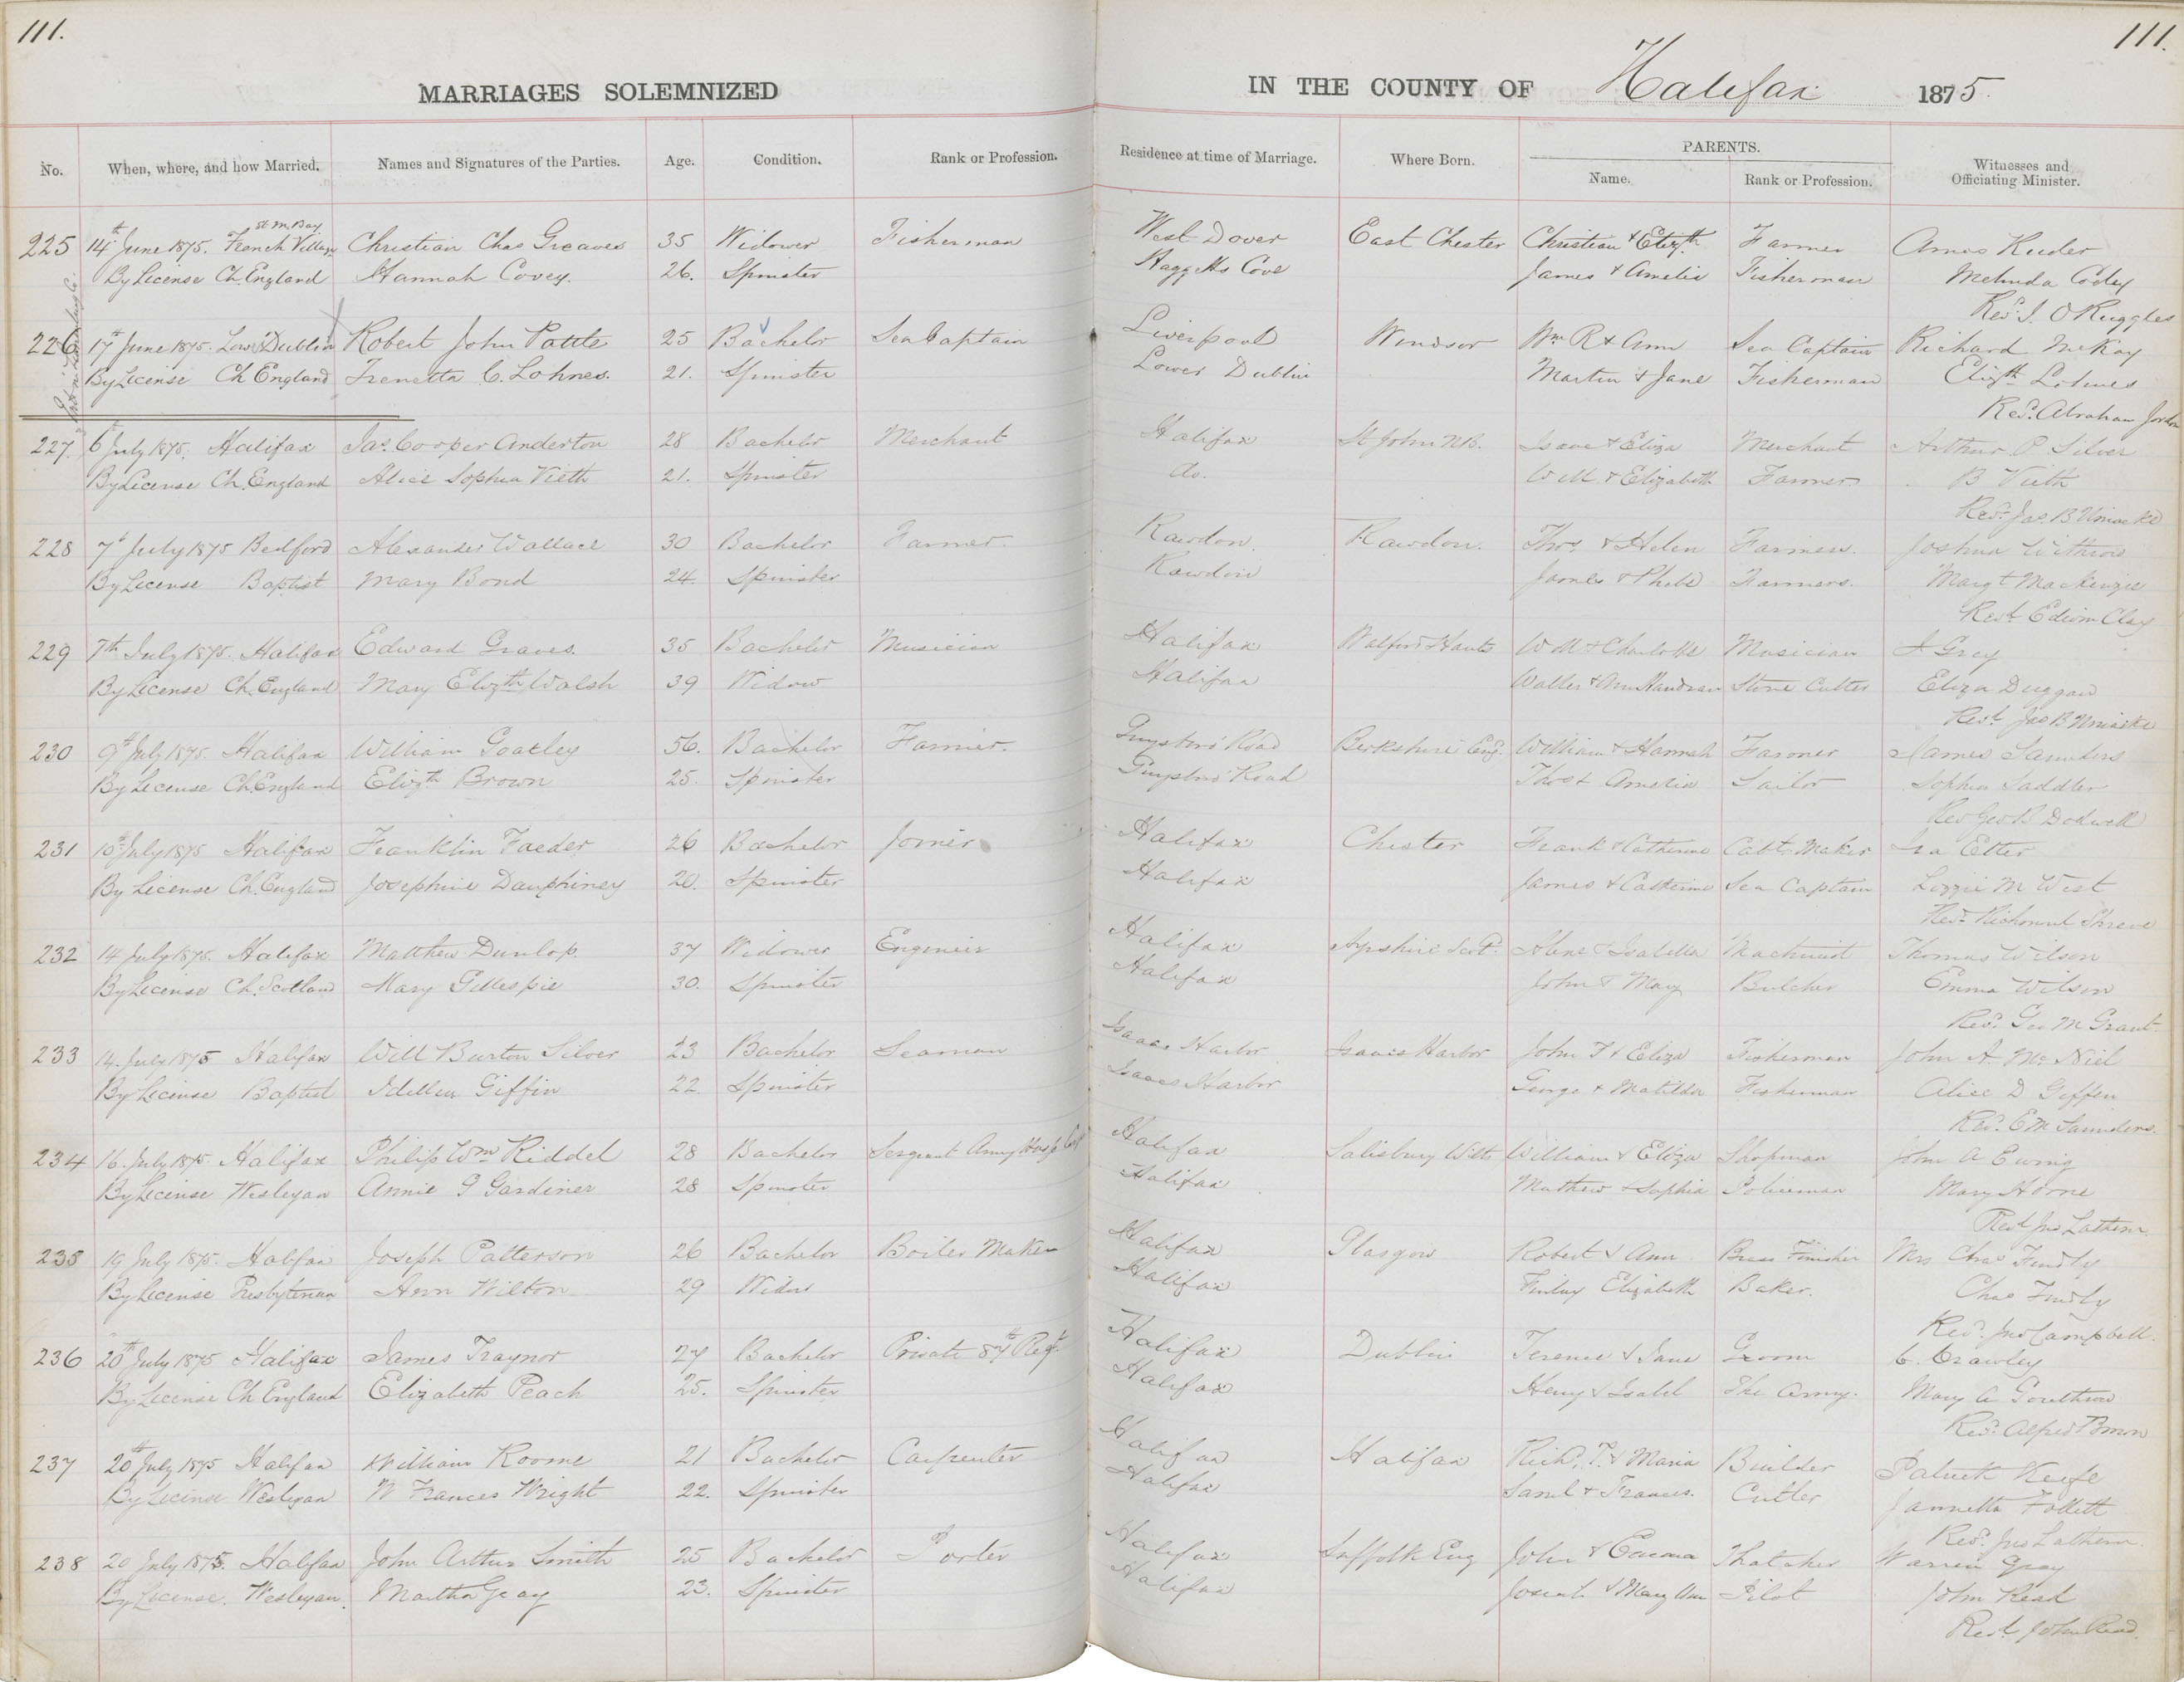 111.
111.
MARRIAGES SOLEMNIZED
IN THE COUNTY OF Halifax 1875.
No. When, where, and how Married. Names and Signatures of the Parties. Age. Condition. Rank or Profession. Residence at time of Marriage. Where Born. PARENTS. Name. Rank or Profession. Witnesses and Officiating Minister.
St M. Bay
225 14th June 1875. French Village Christian Chas Greaves 35 Widower Fisherman West Dover East Chester Christian & Elizth Farmer Amos
By License Ch. England Hannah Covey. 26. Spinster Haggetts Cove James & Amelia Fisherman Melinda
Revd. J. O Ruggles
226 17th June 1875. Low Dublin Robert John Pattle 25 Bachelor Sea Captain Liverpool Windsor Wm R & Ann Sea Captain Richard McKay
By License Ch England Trenetta C. Lohnes. 21. Spinster Lower Dublin Martin & Jane Fisherman Elizth Lohnes
Revd. Abraham Jordan
227 6th July 1875. Halifax Jas. Cooper Anderton 28 Bachelor Merchant Halifax St John N.B. Isaac & Eliza Merchant Arthur P. Silver
By License Ch. England Alice Sophia Vieth 21. Spinster do. W M & Elizabeth Farmer B Vieth
Revd. Jas. B Uniacke
228 7th July 1875 Bedford Alexander Wallace 30 Bachelor Farmer Rawdon. Rawdon. Thos. & Helen Farmers. Joshua Withrow
By License Baptist Mary Bond 24. Spinster Rawdon James & Phebe Farmers. Margt MacKenzie
Revd. Edwin Clay
229 7th July 1875. Halifax Edward Graves. 35 Bachelor Musician Halifax Hants W M & Charlotte Musician J Grey
By License Ch. England Mary Elizth Walsh 39 Widow Halifax Walter & Ann Stone Cutter Eliza Duggan
Revd. Jas B Uniacke
230 9th July 1875. Halifax William Goatley 56. Bachelor Farmer. Guysboro' Road Berkshire Eng. William & Hannah Farmer James Saunders
By License Ch. England Elizth Brown 25. Spinster Guysboro' Road Thos & Amelia Sailor Sophia Saddler
Rev Geo B Dodwell
231 10th July 1875 Halifax Franklin Faeder 26 Bachelor Joiner Halifax Chester Frank & Catherine Cabt. Maker Ira Etter
By License Ch. England Josephine Dauphiney 20. Spinster Halifax James & Catherine Sea Captain Lizzie M West
Revd. Richmond Shreve
232 14 July 1875. Halifax Matthew Dunlop. 37 Widower Engineer Halifax Ayrshire Scot. & Isabella Machinist Thomas Wilson
By License Ch. Scotland Mary Gillespie 30. Spinster Halifax John & Mary Butcher Emma Wilson
Revd. Geo M Grant
233 14. July 1875 Halifax Will Burton Silver 23 Bachelor Seaman Isaacs Harbor Isaacs Harbor John F & Eliza Fisherman John A. Mc Niel
By License Baptist Idella Giffin 22. Spinster Isaacs Harbor George & Matilda Fisherman Alice D Giffen
Revd. E M Saunders.
234 16. July 1875 Halifax Philip Wm Riddel 28 Bachelor Sergeant Army Hosp. Halifax Salisbury Wilts William & Eliza Shopman John A Ewing
By License Wesleyan Annie G Gardiner 28 Spinster Halifax Mathew & Sophia Policeman Mary Horne
Revd Jno Lathern.
235 19 July 1875. Halifax Joseph Patterson 26 Bachelor Boiler Maker Halifax Glasgow Robert & Ann Brass Finisher Mrs Chas Findly
By License Presbyterian Ann Wilton 29 Widow Halifax Finlay Elizabeth Baker. Chas Findly
Revd. Jno Campbell.
236 20th July 1875 Halifax James Traynor 27 Bachelor Private 87th Regt. Halifax Dublin Terence & Jane Groom C. Crawley
By License Ch England Elizabeth Peach 25. Spinster Halifax Henry & Isabel The Army. Mary A
Revd. Alfred Brown
237 20th July 1875 Halifax William Roome 21 Bachelor Carpenter Halifax Halifax Richd. T. & Maria Builder Patrick Keefe
By License Wesleyan W Frances Wright 22. Spinster Halifax Saml & Frances. Cutter Jannetta Follett
Revd. Jno Lathern.
238 20 July 1875. Halifax John Arthur Smith 25 Bachelor Porter Halifax Suffolk Eng John & Emma Thatcher Warren Gray
By License. Wesleyan. Martha Gray 23. Spinster Halifax Josiah & Mary Ann Pilot John Read
Revd. John Read.